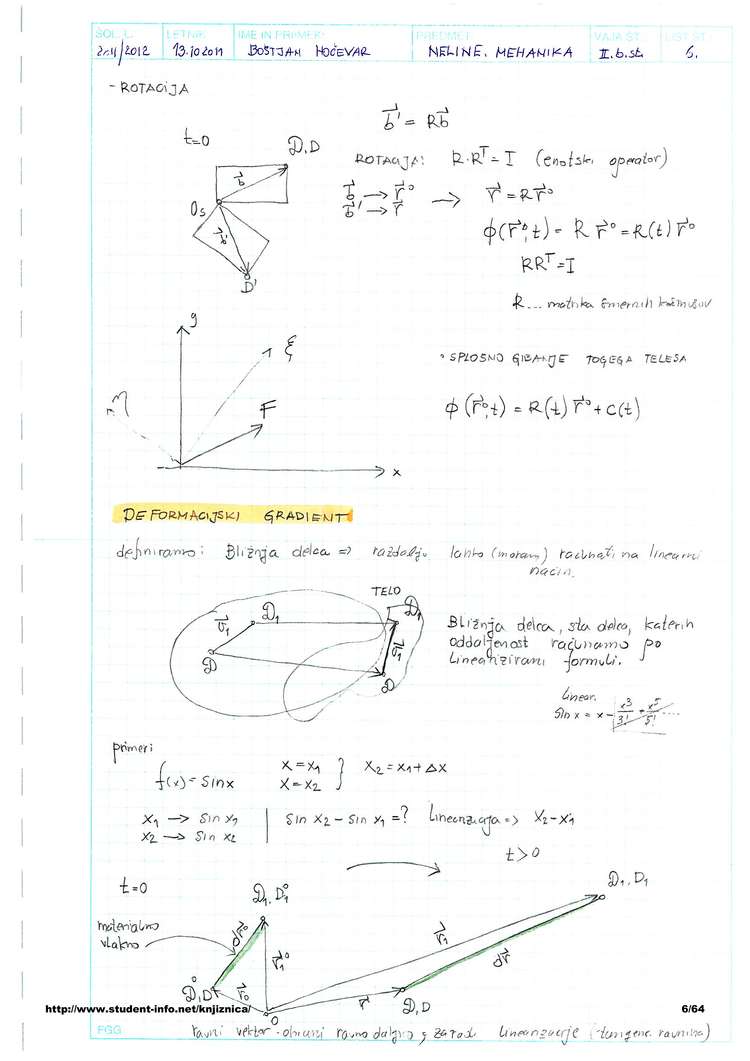 ŠOL. L. LETNIK IME IN PRIIMEK: PREDMET: VAJA ŠT.: LIST ŠT.:
2011/2012 13.10.2011 BOŠTJAN HOČEVAR NELINE. MEHANIKA II.b.st. 6.
- ROTACIJA
b⃗' = R b⃗
t=0 D, D
ROTACIJA: R·Rᵀ = I (enotski operator)
b⃗
b⃗ → r⃗° → r⃗ = R r⃗°
b⃗' → r⃗
O_s
b⃗'
ϕ(r⃗°, t) = R r⃗° = R(t) r⃗°
R Rᵀ = I
D'
R ... matrika smernih kosinusov
y
ξ
• SPLOŠNO GIBANJE TOGEGA TELESA
η
F
ϕ(r⃗°, t) = R(t) r⃗° + c(t)
x
DEFORMACIJSKI GRADIENT
definiramo: Bližnja delca => razdaljo lahko (moram) računati na linearni
način.
TELO
D₁ D₁
v⃗₁ v⃗₁
D D
Bližnja delca, sta delca, katerih
oddaljenost računamo po
linearizirani formuli.
linear.
sin x = x - x³/3! + x⁵/5! ....
primer:
f(x) = sin x x = x₁ } x₂ = x₁ + Δx
x = x₂
x₁ → sin x₁ | sin x₂ - sin x₁ = ? linearizacija => x₂ - x₁
x₂ → sin x₂
t > 0
t=0
D₁, D₁° D₁, D₁
materialno
vlakno
dr⃗° r⃗₁° r⃗₁ dr⃗
D, D° r⃗° r⃗ D, D
O
http://www.student-info.net/knjiznica/ 6/64
FGG ravni vektor ohrani ravno daljno zaradi linearizacije (tangenc. ravnina)